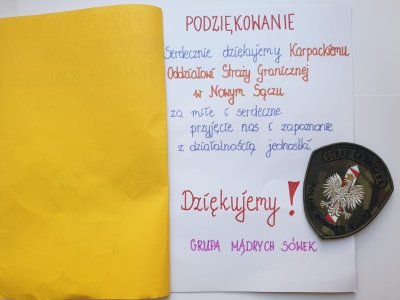 PODZIĘKOWANIE
Serdecznie dziękujemy Karpackiemu
Oddziałowi Straży Granicznej
w Nowym Sączu
za miłe i serdeczne
przyjęcie nas i zapoznanie
z działalnością jednostki.
Dziękujemy!
GRUPA MĄDRYCH SÓWEK
STRAŻ GRANICZNA